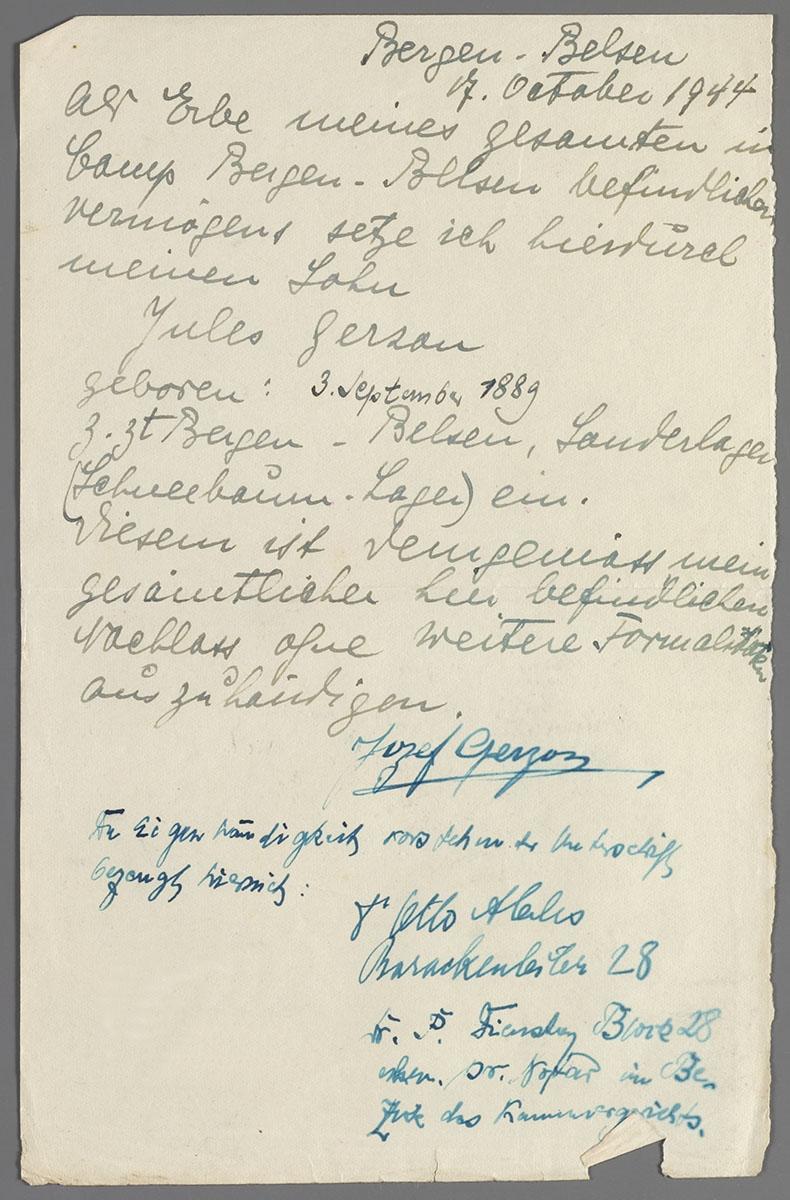 Bergen - Belsen
17. October 1944
Als Erbe meines gesamten in
Camp Bergen - Belsen befindlichen
vermögens setze ich hierdurch
meinen Sohn
Jules Gerzon
geboren: 3. September 1889
z. Zt Bergen - Belsen, Sonderlager
(Schneebaum - Lager) ein.
Diesem ist demgemäss mein
gesamtlicher hier befindlichen
Nachlass ohne weitere Formalitäten
auszuhändigen.
Jozef Gerzon
Die Eigenhändigkeit vorstehender Unterschrift
bezeugt hiermit:
Dr Otto
Barackenleiter 28
Dr. P. Block 28
ehem. Notar im Be-
zirk des Kammergerichts.